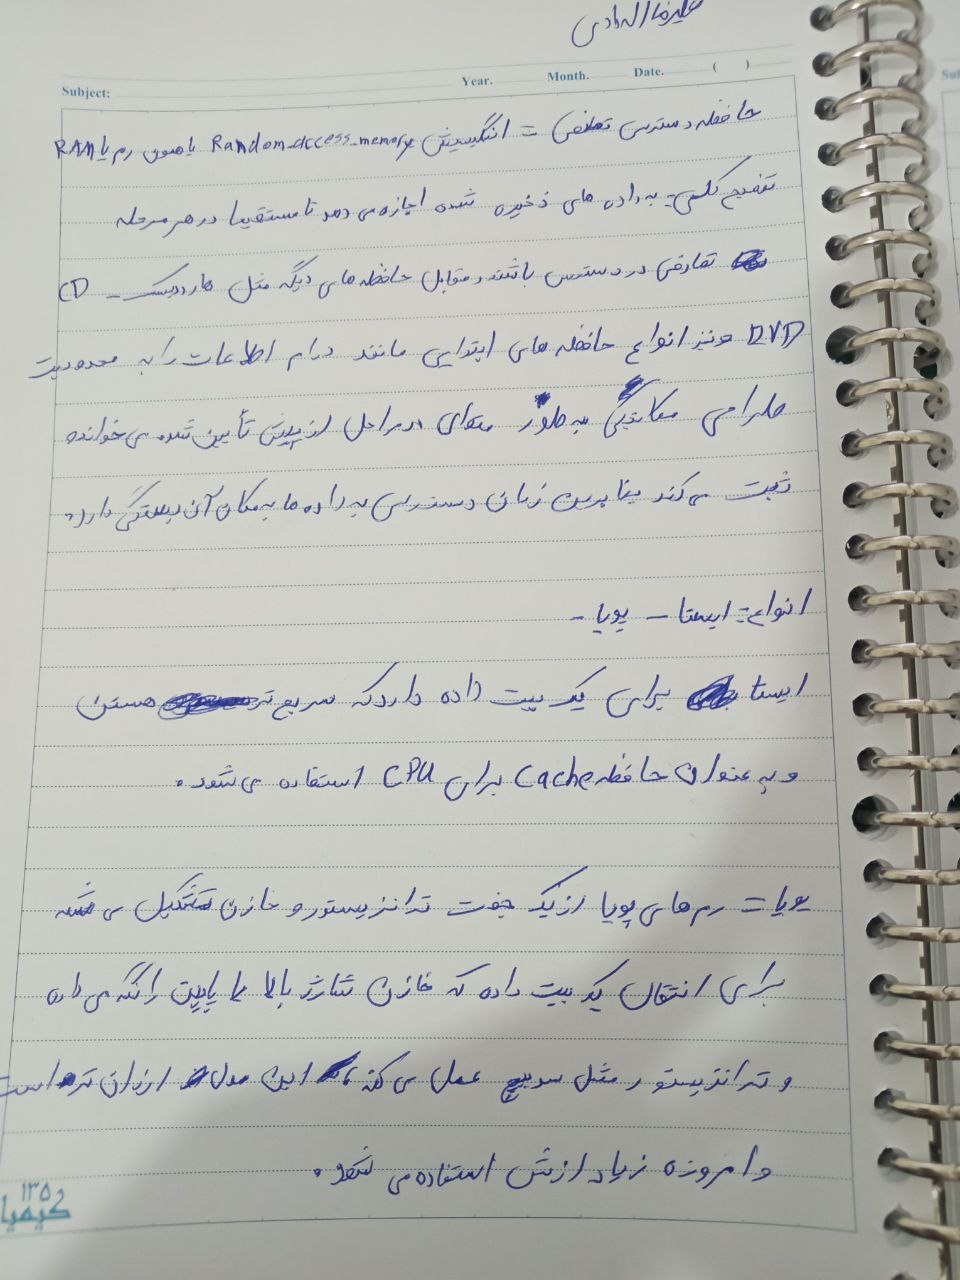 علیرضا الهدادی
Subject: Year. Month. Date. ( )
حافظه دسترسی تصادفی = انگلیسیش Random_Access_memory یا همون رم یا RAM
توضیح کلی = به داده های ذخیره شده اجازه می دهد تا مستقیما در هر مرحله
تصادفی در دسترس باشند و مقابل حافظه های دیگه مثل هارددیسک - CD
DVD و نیز انواع حافظه های ابتدایی مانند درام اطلاعات را به محدودیت
طراحی مکانیکی به طور متوالی در مراحل از پیش تأیین شده می خوانده
ثبت می کند بنابرین زمان دسترسی به داده ها به مکان آن بستگی دارد.
انواع = ایستا - پویا -
ایستا برای یک بیت داده دارد که سریع تر هستن
و به عنوان حافظه Cache برای CPU استفاده می شود.
پویا = رم های پویا از یک جفت ترانزیستور و خازن تشکیل می شه
برای انتقال یک بیت داده که خازن شارژ بالا یا پایین را نگه می داره
و ترانزیستور مثل سوییچ عمل می کنه این مدل ارزان تر است
و امروزه زیاد ازش استفاده می شود.
۱۳۵۰
کیمیا